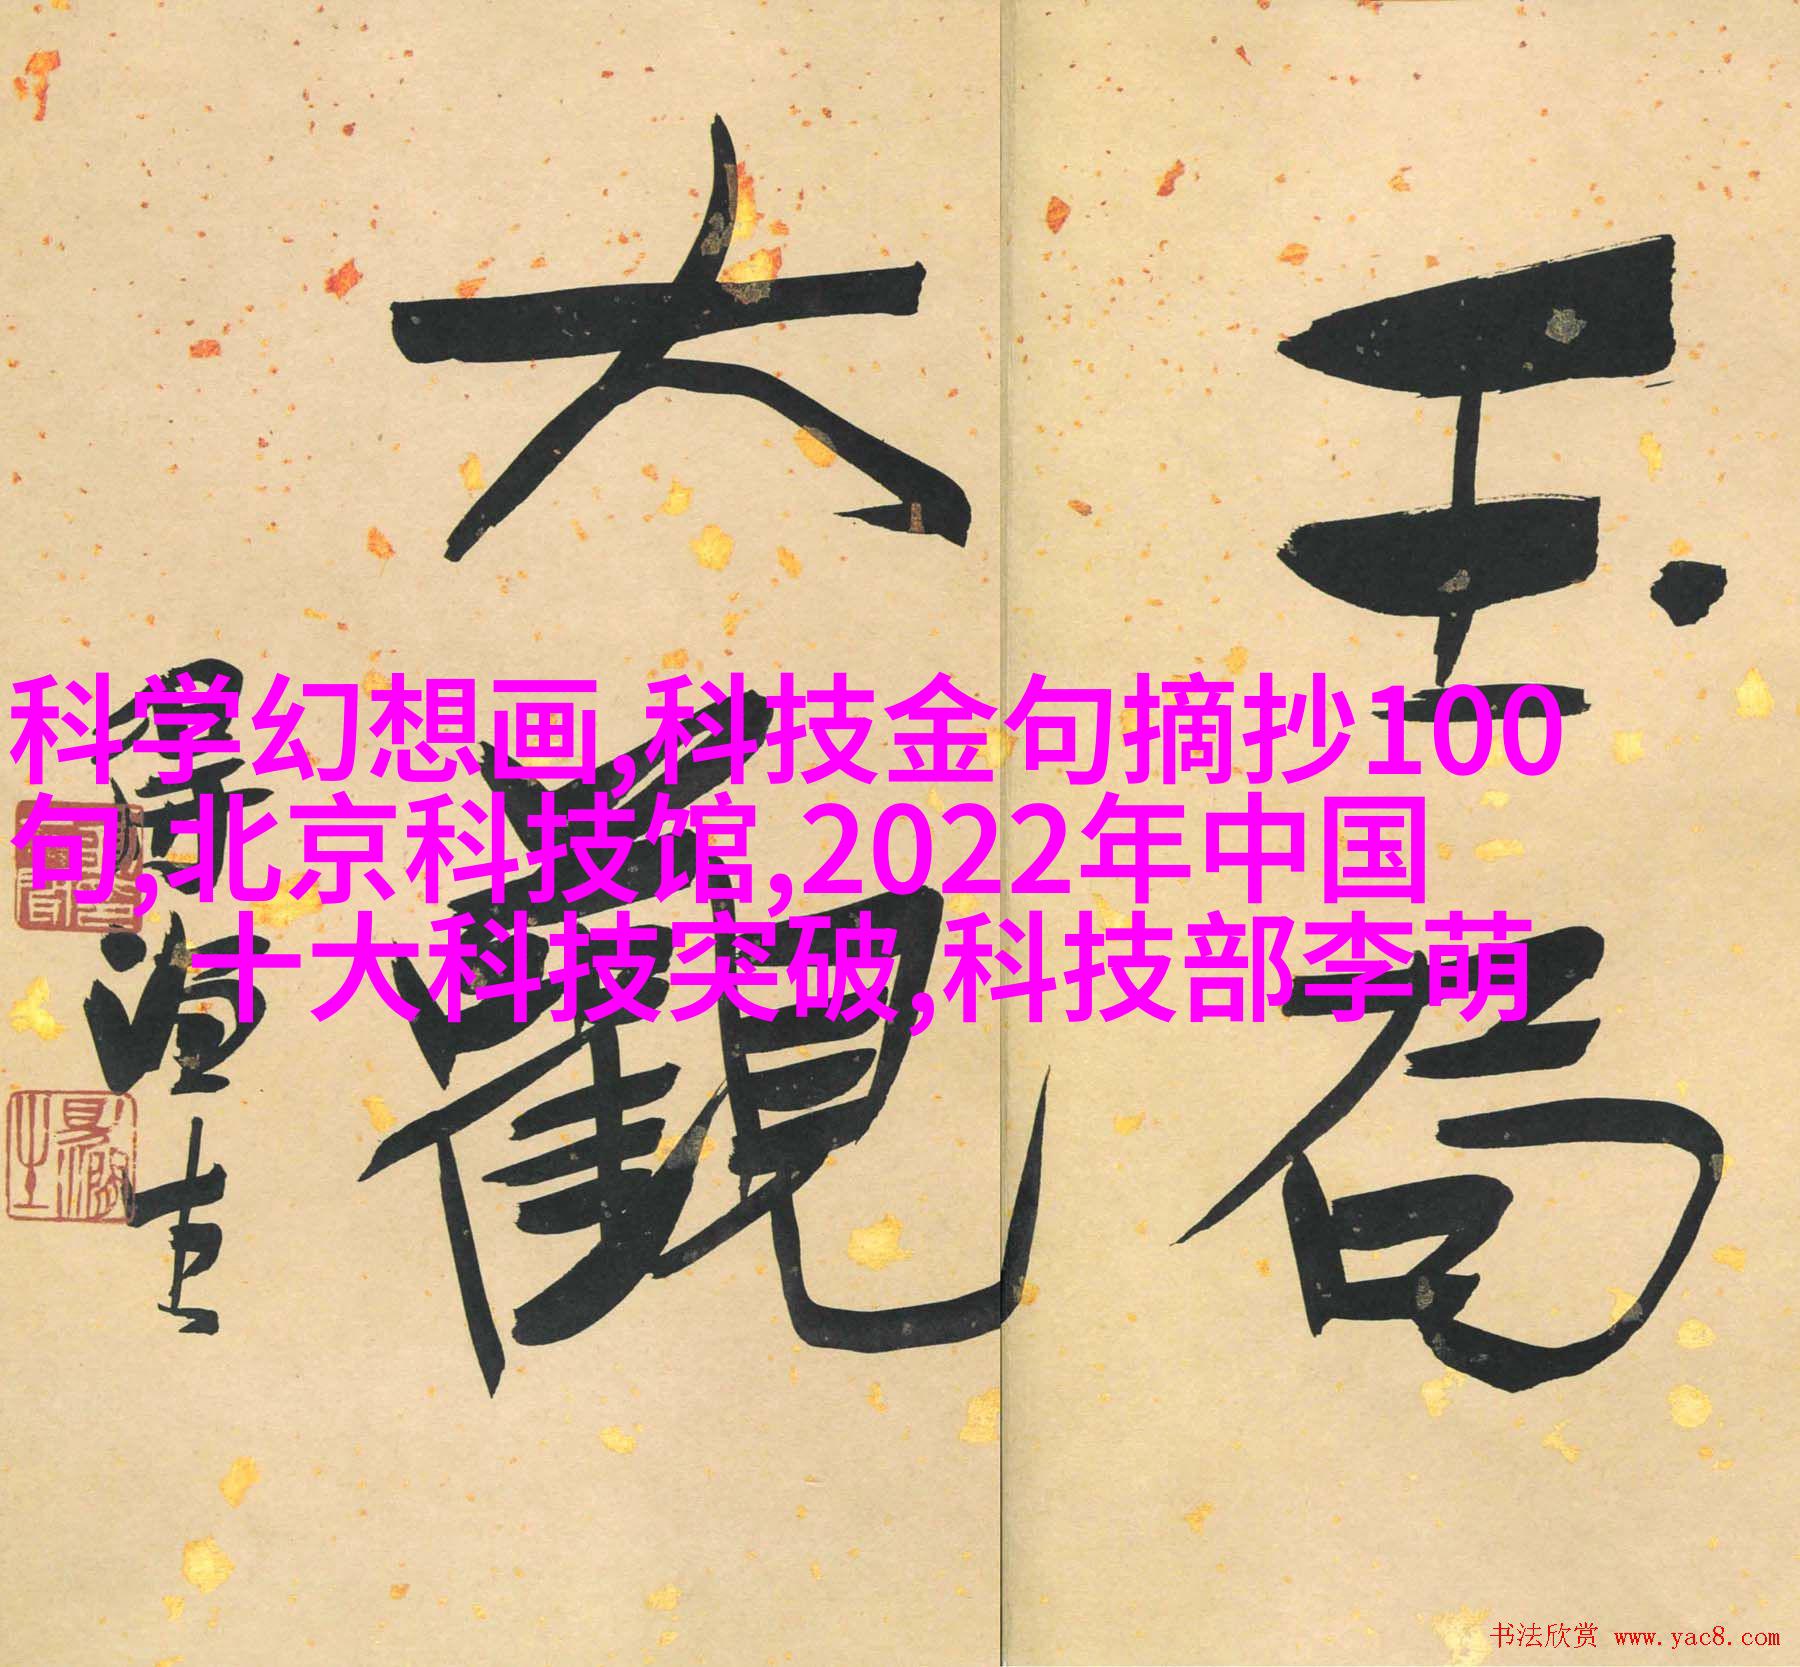 玉局
大觀
澤源書
科学幻想画,科技金句摘抄100
句,北京科技馆,2022年中国
十大科技突破,科技部李萌
书法欣赏 www.yac8.com